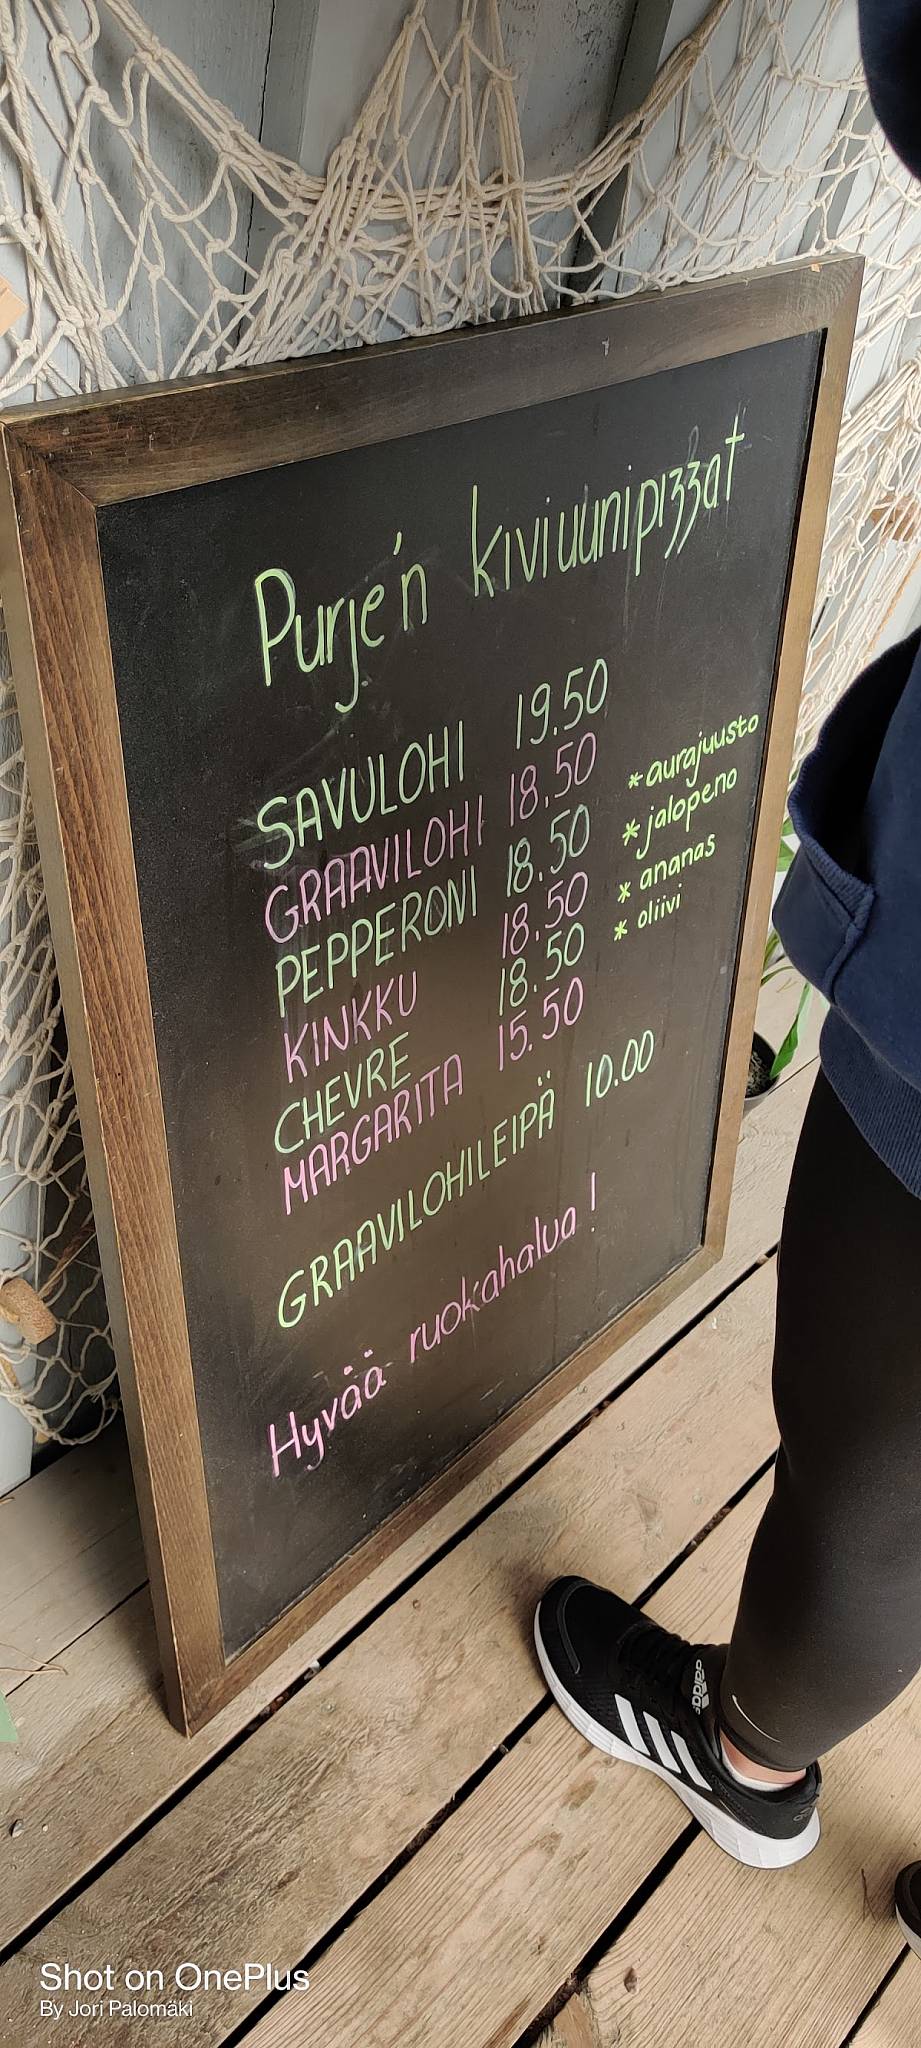 Purje'n kiviuunipizzat
SAVULOHI 19.50
GRAAVILOHI 18.50
PEPPERONI 18.50
KINKKU 18.50
CHEVRE 18.50
MARGARITA 15.50
* aurajuusto
* jalopeno
* ananas
* oliivi
GRAAVILOHILEIPÄ 10.00
Hyvää ruokahalua!
adidas
Shot on OnePlus
By Jori Palomäki